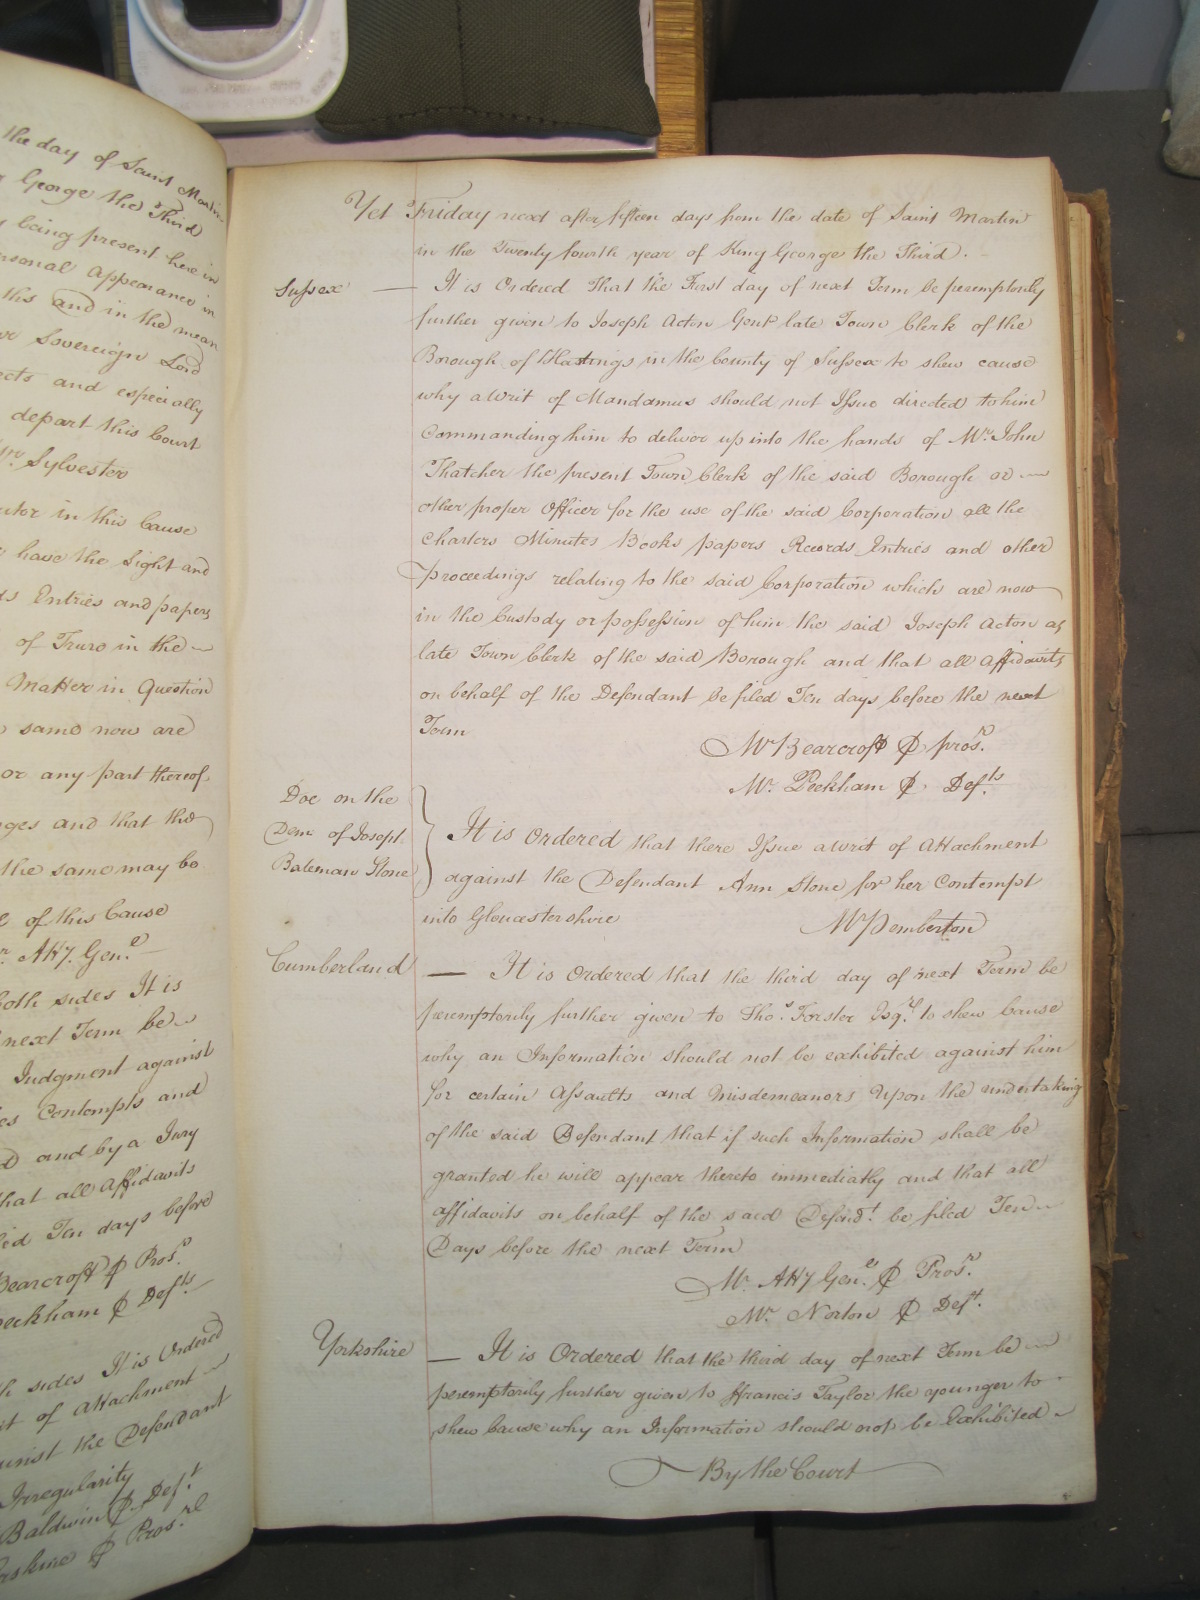 the day of Saint Martin
George the Third
being present here in
personal appearance in
this and in the mean
Sovereign Lord
and especially
depart this Court
Mr Sylvester
in this Cause
have the Sight and
Entries and papers
of Truro in the
Matter in Question
same now are
or any part thereof
and that the
the same may be
of this Cause
Atty. Genl.
both sides It is
next Term be
Judgment against
Contempts and
and by a Jury
that all Affidavits
filed Ten days before
Bearcroft ⅌ Prosr.
Peckham ⅌ Defts.
sides It is Ordered
of Attachment
against the Defendant
Irregularity
Baldwin ⅌ Deft.
Erskine ⅌ Prosr.
Yet Friday next after fifteen days from the date of Saint Martin
in the Twenty fourth year of King George the Third.
Sussex — It is Ordered That the First day of next Term be peremptorily
further given to Joseph Acton Gent late Town Clerk of the
Borough of Hastings in the County of Sussex to shew cause
why a Writ of Mandamus should not Issue directed to him
Commanding him to deliver up into the hands of Mr. John
Thatcher the present Town Clerk of the said Borough or
other proper Officer for the use of the said Corporation all the
Charters Minutes Books papers Records Entries and other
proceedings relating to the said Corporation which are now
in the Custody or possession of him the said Joseph Acton as
late Town Clerk of the said Borough and that all Affidavits
on behalf of the Defendant be filed Ten days before the next
Term
Mr Bearcroft ⅌ prosr.
Mr. Peckham ⅌ Defts.
Doe on the
Dem of Joseph
Bateman Stone
It is Ordered that there Issue a Writ of Attachment
against the Defendant Ann Stone for her Contempt
into Gloucestershire
Mr Pemberton
Cumberland — It is Ordered that the third day of next Term be
peremptorily further given to Thos. Forster Esqre. to shew Cause
why an Information should not be exhibited against him
for certain Assaults and Misdemeanors Upon the undertaking
of the said Defendant that if such Information shall be
granted he will appear thereto immediately and that all
affidavits on behalf of the said Defendt. be filed Ten
Days before the next Term
Mr. Atty Genl. ⅌ Prosr.
Mr. Norton ⅌ Deft.
Yorkshire — It is Ordered that the third day of next Term be
peremptorily further given to Francis Taylor the younger to
shew Cause why an Information should not be Exhibited
By the Court